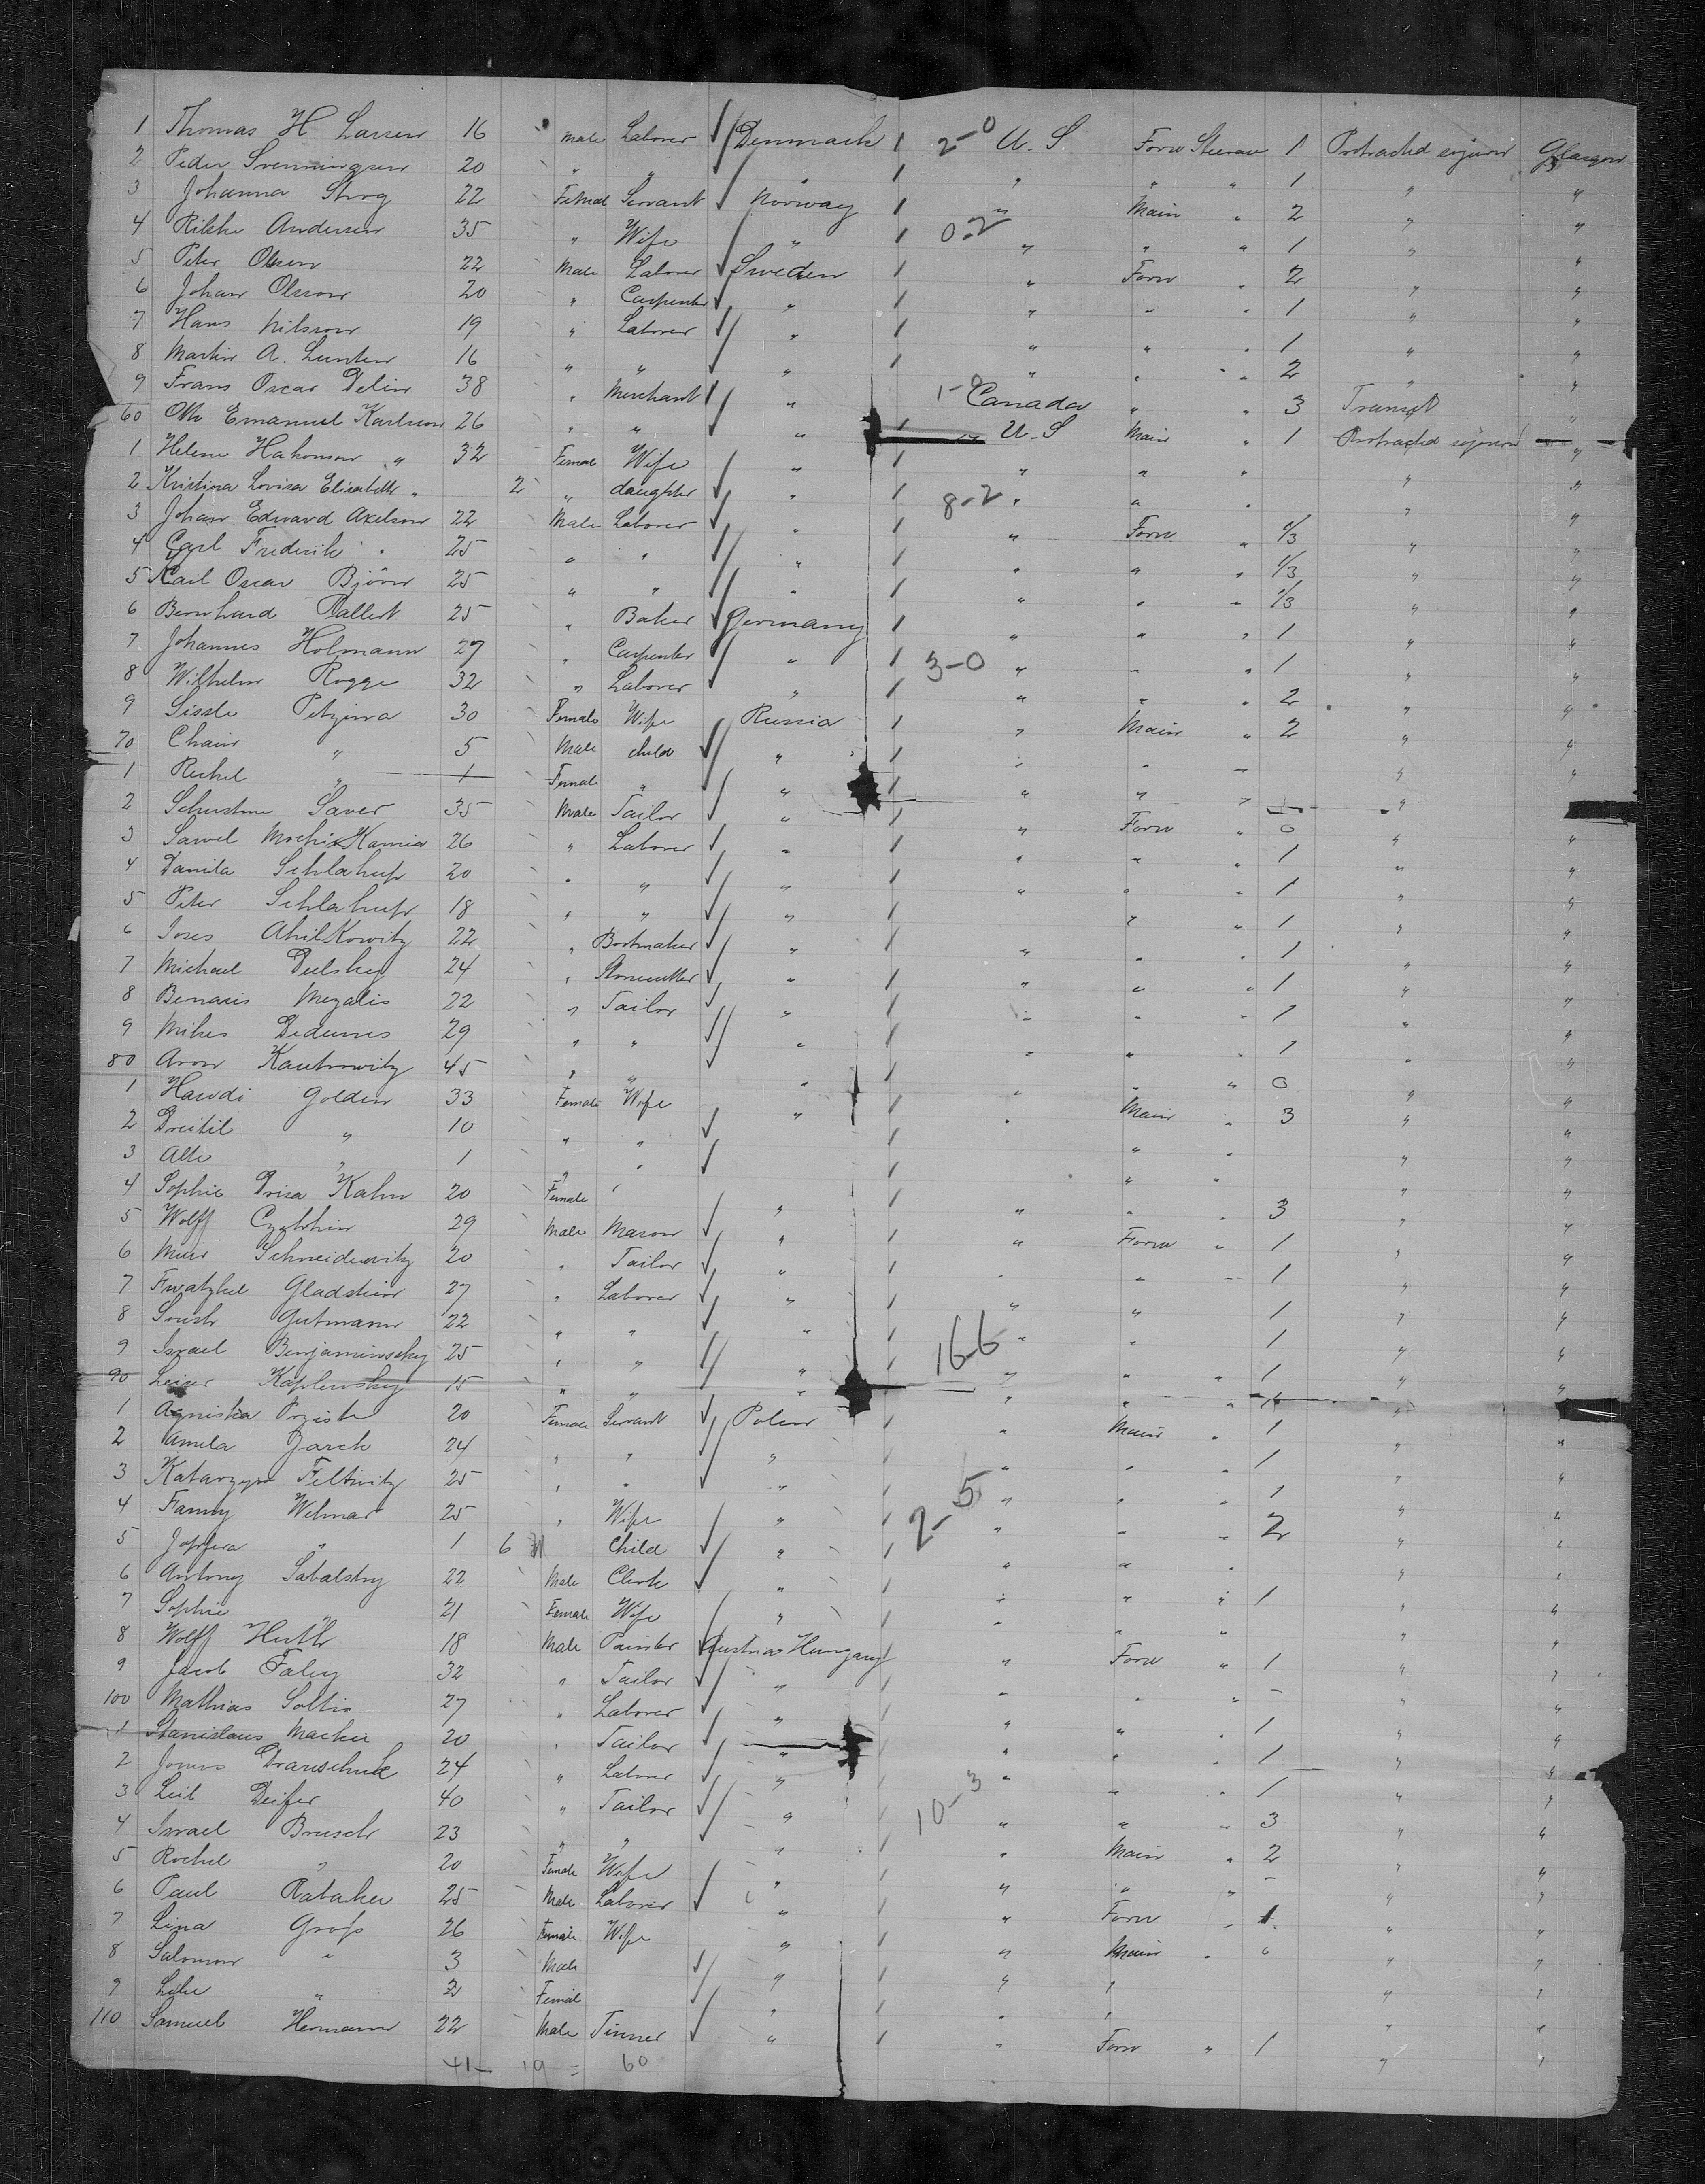 1 Thomas H Larsen 16 male Laborer Denmark 2-0 U.S. Forw Steerage 1 Protracted sojourn Glasgow
2 Peder Svenningsen 20 " " " " " " 1 " "
3 Johanna Strog 22 Female Servant Norway " Main " 2 " "
4 Rikke Andersen 35 " Wife " 0-2 " " " 1 " "
5 Peter Olsen 22 Male Laborer Sweden " Forw " 2 " "
6 Johan Olsson 20 " Carpenter " " " " 1 " "
7 Hans Nilsson 19 " Laborer " " " " 1 " "
8 Martin A. Lunten 16 " " " " " " 2 " "
9 Frans Oscar Delin 38 " Merchant " 1-0 Canada " " 3 Transit "
60 Otto Emanuel Karlsson 26 " " " U.S Main " 1 Protracted sojourn "
1 Helena Hakonson " 32 Female Wife " " " " " "
2 Kristina Lovisa Elisabeth " 2 " daughter " 8-2 " " " " "
3 Johan Edward Axelson 22 Male Laborer " " Forw " 1/3 " "
4 Carl Frederik " 25 " " " " " " 1/3 " "
5 Karl Oscar Björn 25 " " " " " " 1/3 " "
6 Bernhard Rallert 25 " Baker Germany " " " 1 " "
7 Johannes Holmann 27 " Carpenter " 3-0 " " " 1 " "
8 Wilhelm Rogge 32 " Laborer " " " " 2 " "
9 Sissle Petzina 30 Female Wife Russia " Main " 2 " "
70 Chain " 5 Male child " " " " " "
1 Rechel " 1 Female " " " " " " "
2 Saver 35 Male Tailor " " Forw " 0 " "
3 Sawel 26 " Laborer " " " " 1 " "
4 Danila Schlahup 20 " " " " " " 1 " "
5 Peter Schlahup 18 " " " " " 1 " "
6 22 " Bootmaker " " " 1 " "
7 Michael Dulsky 24 " Stonecutter " " " " 1 " "
8 Benaris Megalis 22 " Tailor " " " " 1 " "
9 29 " " " " " 1 " "
80 Aron Kantrowitz 45 " " " " " " 0 " "
1 Hawdi Golden 33 Female Wife " " Main " 3 " "
2 Dreitil " 10 " " " " " "
3 Alte " 1 " " " " " "
4 Sophie Kahn 20 Female " " " " " 3 " "
5 Wolff 29 Male Mason " " Forw " 1 " "
6 Meir Schneidewitz 20 " Tailor " " " " 1 " "
7 Gladstein 27 " Laborer " " " 1 " "
8 Gutmann 22 " " " " " 1 " "
9 Israel Benjaminsky 25 " " " 16-6 " " " 1 " "
90 Leiser Kaplewsky 15 " " " " " " 1 " "
1 Agniska 20 Female Servant Polen " Main " 1 " "
2 Jarch 24 " " " " " " 1 " "
3 Katarzyn Feltwitz 25 " " " " " " 1 " "
4 Fanny Welmar 25 " Wife " 2-5 " " " 2 " "
5 " 1 6 Child " " " " " "
6 Antony Sabalsky 22 Male Clerk " " " " 1 " "
7 Sophie 21 Female Wife " " " " " "
8 Wolff Huth 18 Male Painter Austria Hungary " Forw " 1 " "
9 Jacob Faley 32 " Tailor " " " " - " "
100 Mathias Soltis 27 " Laborer " " " 1 " "
1 Stanislaus Mackie 20 " Tailor " " " " 1 " "
2 24 " Laborer " " " " 1 " "
3 Leib Deifer 40 " Tailor " 10-3 " " " 3 " "
4 Israel Brusch 23 " " " " Main " 2 " "
5 Rochel " 20 Female Wife " " " " - " "
6 Paul Rataher 25 Male Laborer " " Forw " 1 " "
7 Lina Gross 26 Female Wife " " Main " 0 " "
8 Salomon " 3 Male " " " " "
9 " 2 Female " " " " "
110 Samuel Hermann 22 Male Tinner " " Forw " 1 " "
41 - 19 = 60